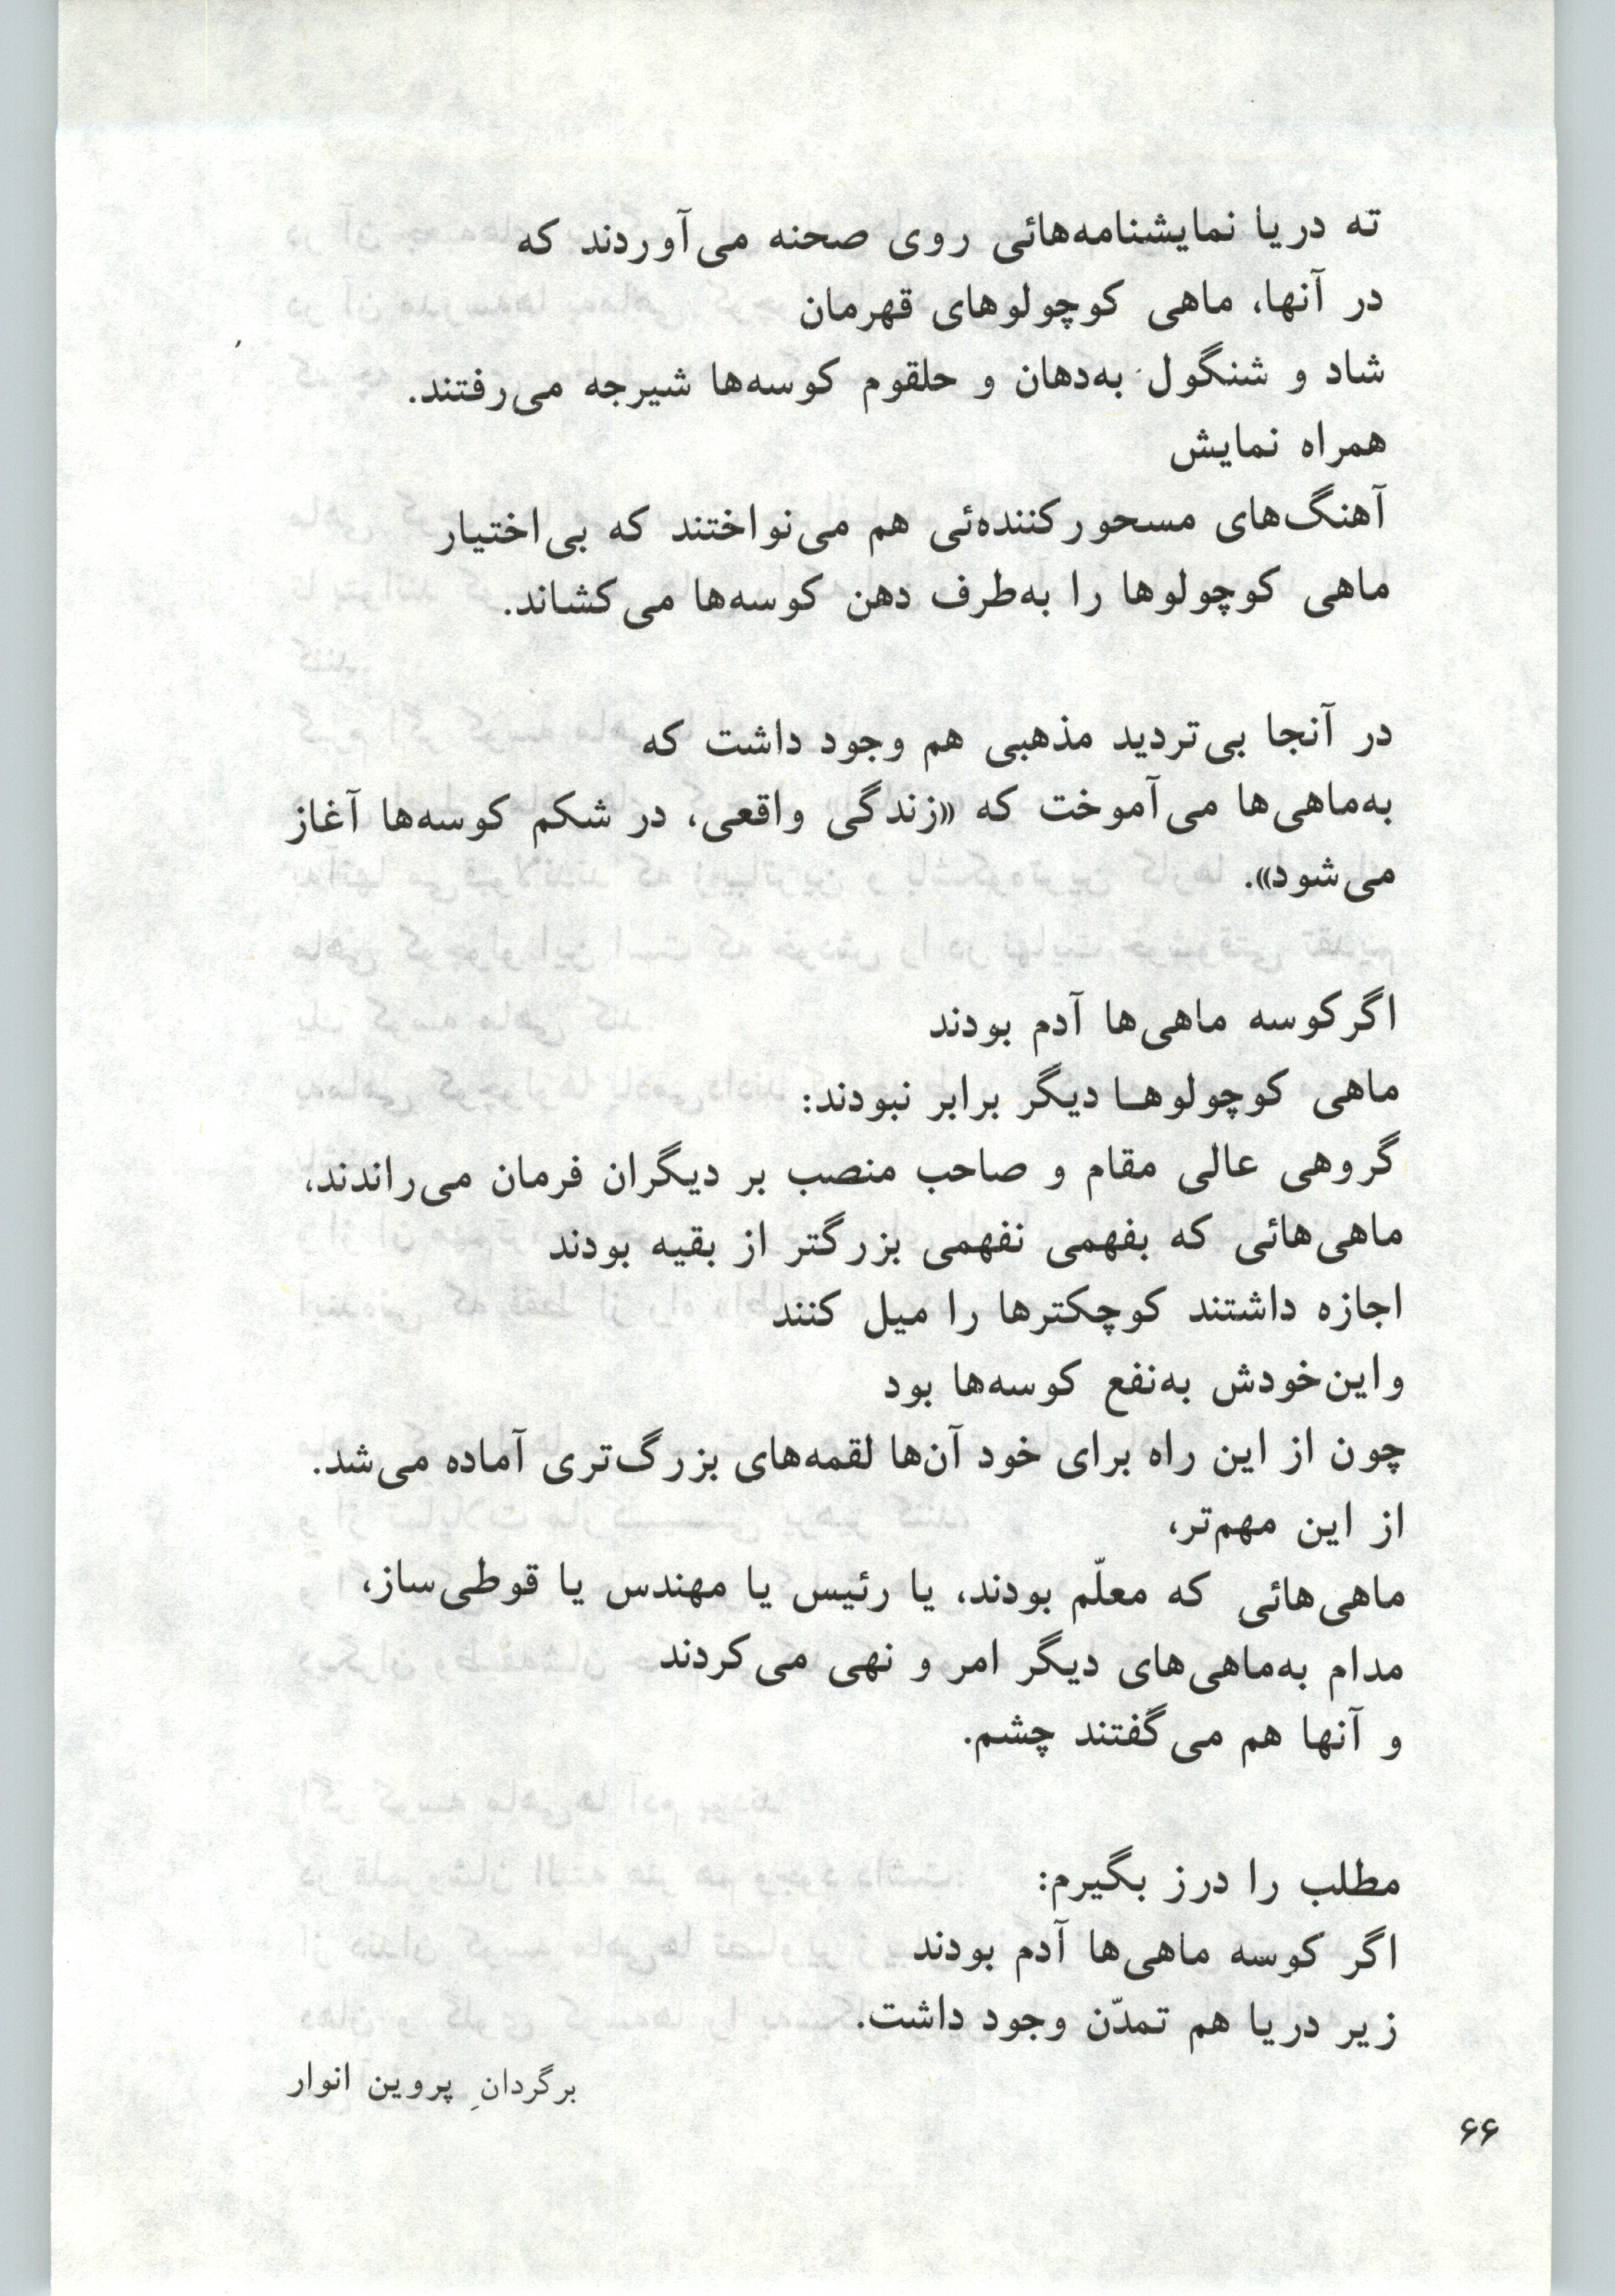 ته دریا نمایشنامه‌هائی روی صحنه می‌آوردند که
در آنها، ماهی کوچولوهای قهرمان
شاد و شنگول به‌دهان و حلقوم کوسه‌ها شیرجه می‌رفتند.
همراه نمایش
آهنگ‌های مسحورکننده‌ئی هم می‌نواختند که بی‌اختیار
ماهی کوچولوها را به‌طرف دهن کوسه‌ها می‌کشاند.
در آنجا بی‌تردید مذهبی هم وجود داشت که
به‌ماهی‌ها می‌آموخت که «زندگی واقعی، در شکم کوسه‌ها آغاز
می‌شود».
اگرکوسه ماهی‌ها آدم بودند
ماهی کوچولوها دیگر برابر نبودند:
گروهی عالی مقام و صاحب منصب بر دیگران فرمان می‌راندند،
ماهی‌هائی که بفهمی نفهمی بزرگتر از بقیه بودند
اجازه داشتند کوچکترها را میل کنند
واین‌خودش به‌نفع کوسه‌ها بود
چون از این راه برای خود آن‌ها لقمه‌های بزرگ‌تری آماده می‌شد.
از این مهم‌تر،
ماهی‌هائی که معلّم بودند، یا رئیس یا مهندس یا قوطی‌ساز،
مدام به‌ماهی‌های دیگر امر و نهی می‌کردند
و آنها هم می‌گفتند چشم.
مطلب را درز بگیرم:
اگر کوسه ماهی‌ها آدم بودند
زیر دریا هم تمدّن وجود داشت.
برگردانِ پروین انوار
۶۶